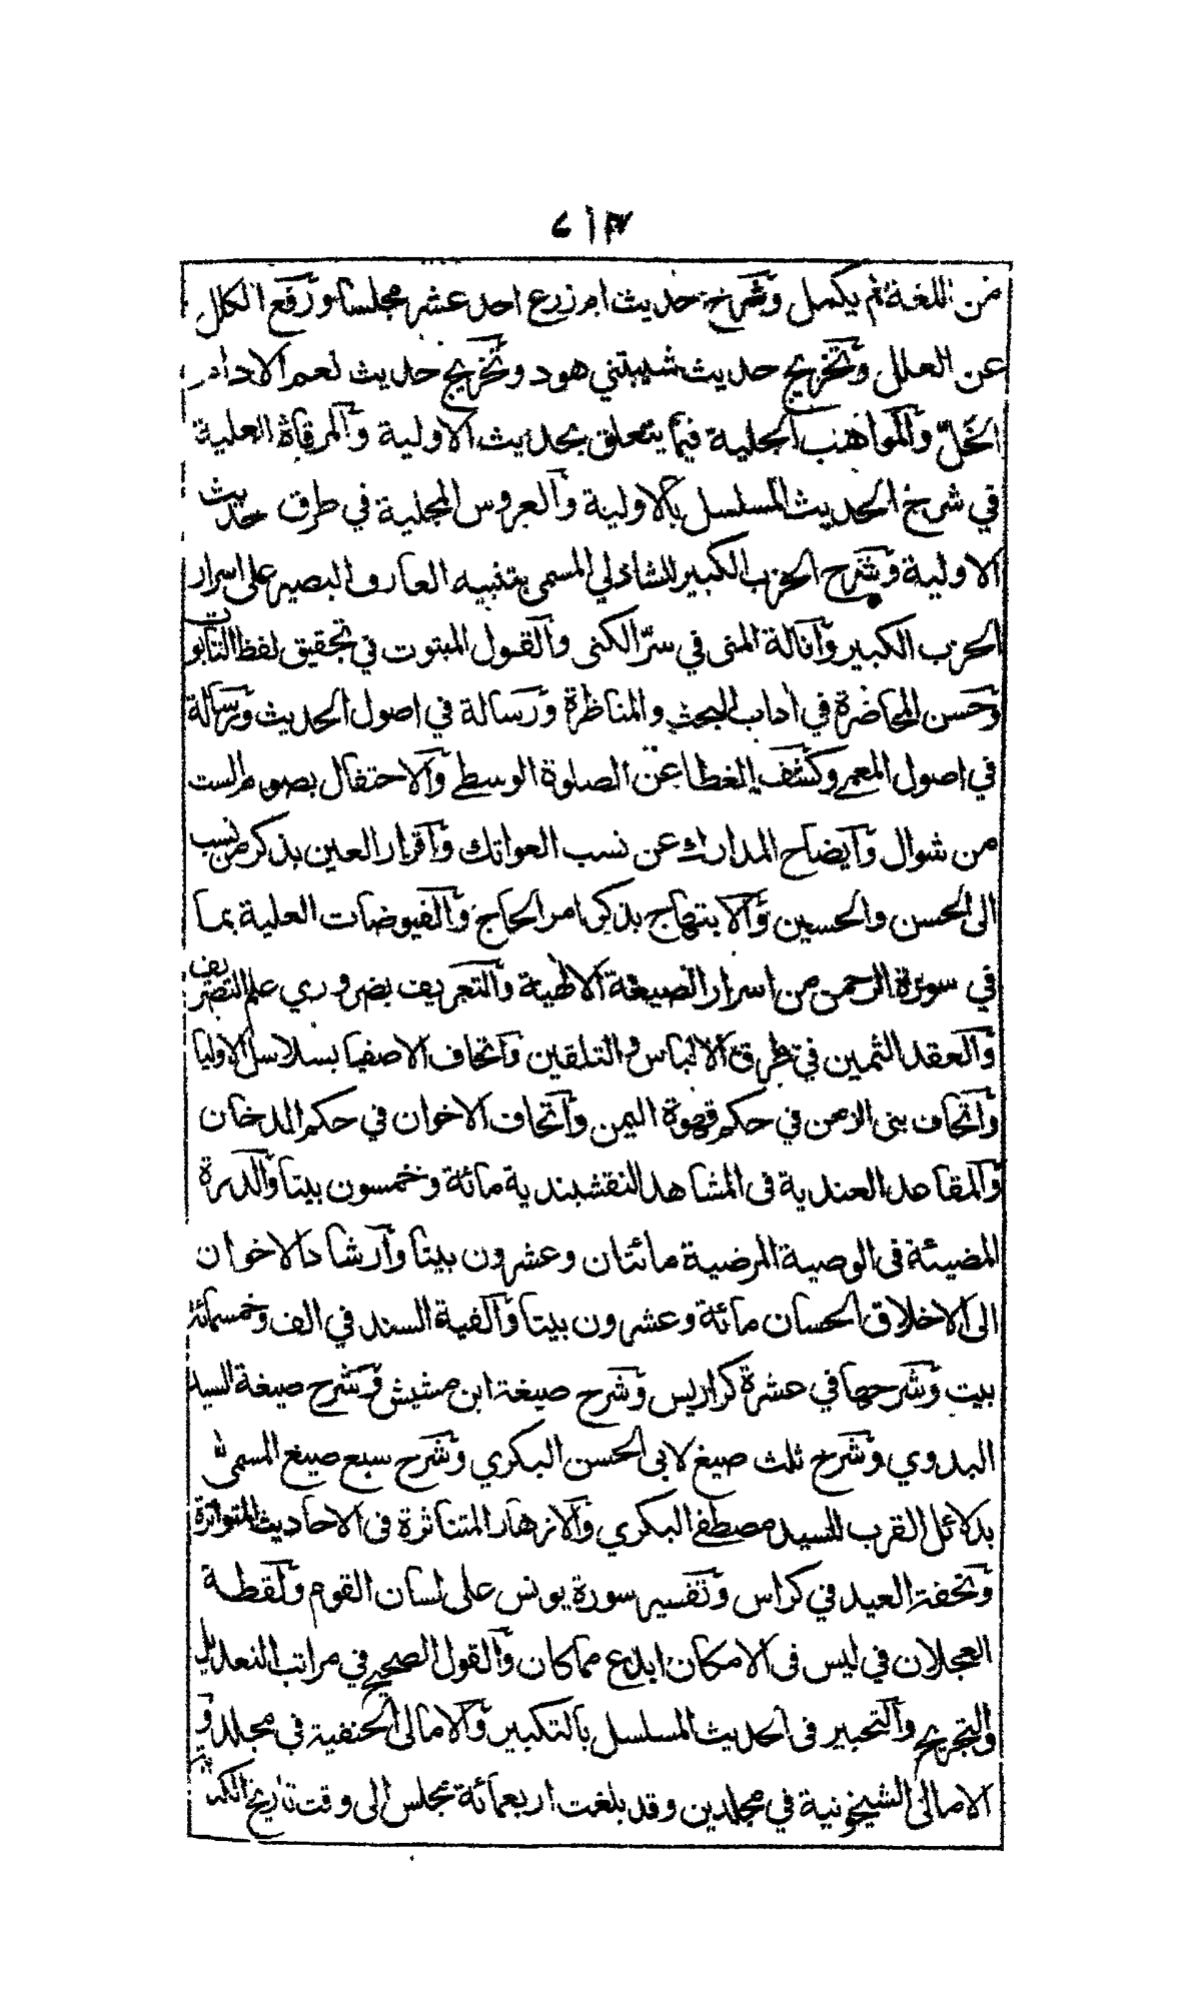 من اللغة لم يكمل وشرح حديث ام زرع احد عشر مجلسا ورفع الكلل
عن العلل وتخريج حديث شيبتني هود وتخريج حديث نعم الادام
الخلّ والمواهب الجلية فيما يتعلق بحديث الاولية والمرقاة العلية
في شرح الحديث المسلسل بالاولية والعروس المجلية في طرق حديث
الاولية وشرح الحزب الكبير للشاذلي المسمى بتنبيه العارف البصير على اسرار
الحزب الكبير وانالة المنى في سرّ الكنى والقول المبتوت في تحقيق لفظ التابوت
وحسن المحاضرة في اداب البحث والمناظرة ورسالة في اصول الحديث ورسالة
في اصول المعمى وكشف الغطا عن الصلوة الوسطى والاحتفال بصوم الست
من شوال وايضاح المدارك عن نسب العواتك واقرار العين بذكر من نسب
الى الحسن والحسين والابتهاج بذكر امر الحاج والفيوضات العلية بما
في سورة الرحمن من اسرار الصيغة الالهية والتعريف بضروري علم التصريف
والعقد الثمين في طرق الالباس والتلقين واتحاف الاصفيا بسلاسل الاوليا
واتحاف بنى الزمن في حكم قهوة اليمن واتحاف الاخوان في حكم الدخان
والمقاعد العندية في المشاهد النقشبندية مائة وخمسون بيتا والدرة
المضيئة في الوصية المرضية مائتان وعشرون بيتا وارشاد الاخوان
الى الاخلاق الحسان مائة وعشرون بيتا والفية السند في الف وخمسمائة
بيت وشرحها في عشرة كراريس وشرح صيغة ابن مشيش وشرح صيغة السيد
البدوي وشرح ثلث صيغ لابى الحسن البكري وشرح سبع صيغ المسمى
بدلائل القرب للسيد مصطفى البكري والازهار المتناثرة في الاحاديث المتواترة
وتحفة العيد في كراس وتفسير سورة يونس على لسان القوم ولقطة
العجلان في ليس في الامكان ابدع مما كان والقول الصحيح في مراتب التعديل
والتجريح والتحبير في الحديث المسلسل بالتكبير والامالى الحنفية في مجلد و
الامالى الشيخونية في مجلدين وقد بلغت اربعمائة مجلس الى وقت تاريخ